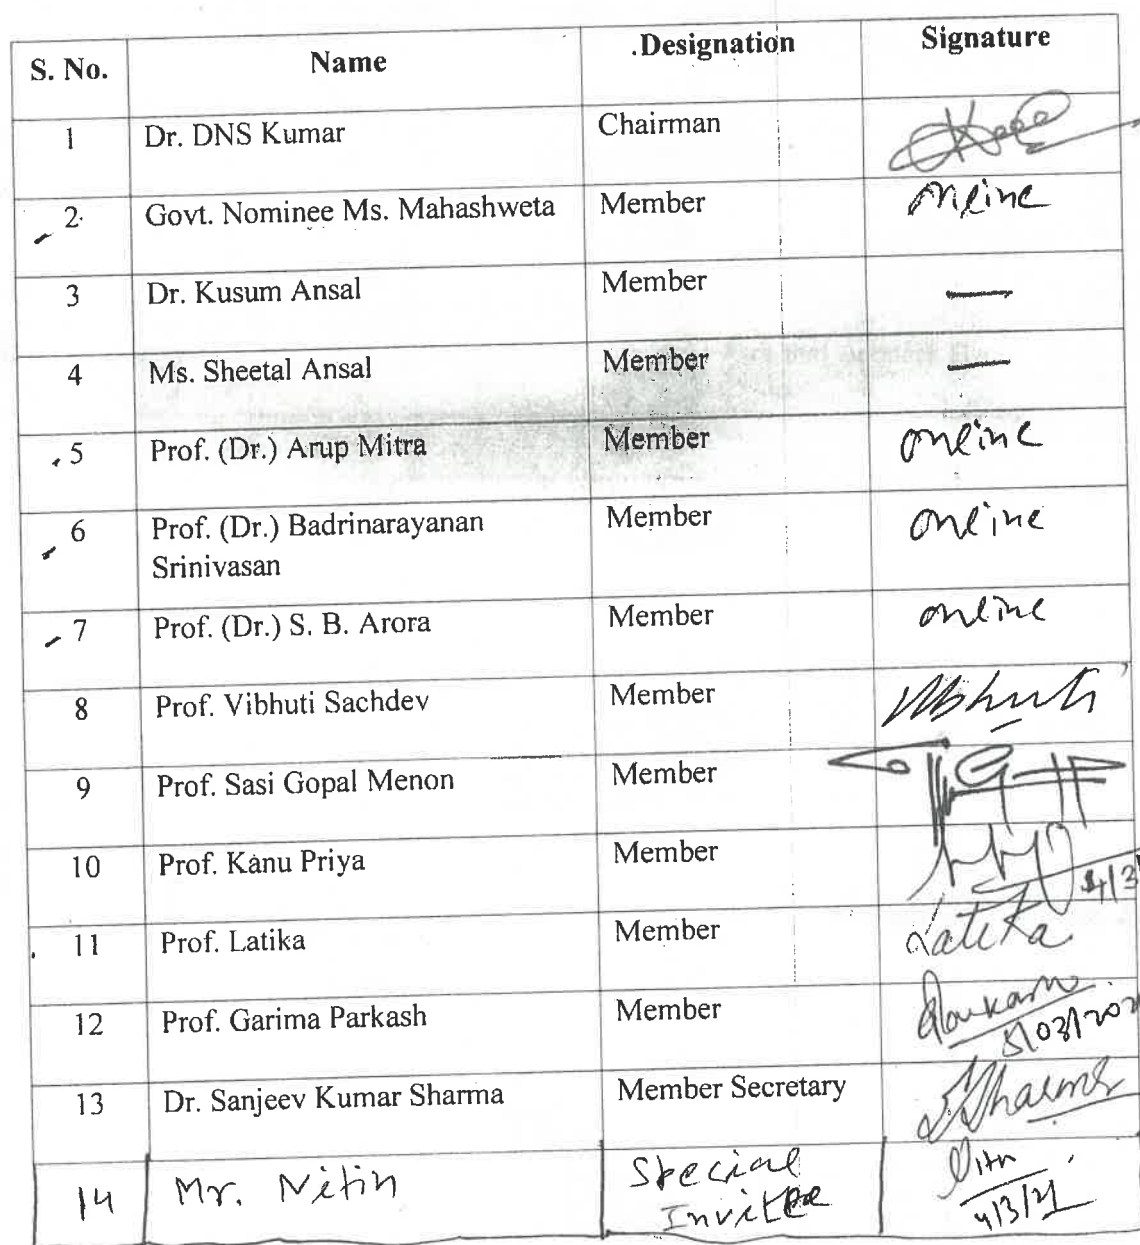 S. No. Name .Designation Signature
1 Dr. DNS Kumar Chairman
2 Govt. Nominee Ms. Mahashweta Member online
3 Dr. Kusum Ansal Member —
4 Ms. Sheetal Ansal Member —
5 Prof. (Dr.) Arup Mitra Member online
6 Prof. (Dr.) Badrinarayanan Member online
Srinivasan
7 Prof. (Dr.) S. B. Arora Member online
8 Prof. Vibhuti Sachdev Member Vibhuti
9 Prof. Sasi Gopal Menon Member
10 Prof. Kanu Priya Member
11 Prof. Latika Member Latika
12 Prof. Garima Parkash Member
13 Dr. Sanjeev Kumar Sharma Member Secretary SSharma
14 Mr. Nitin Special Nitn
Invitee 4/3/21